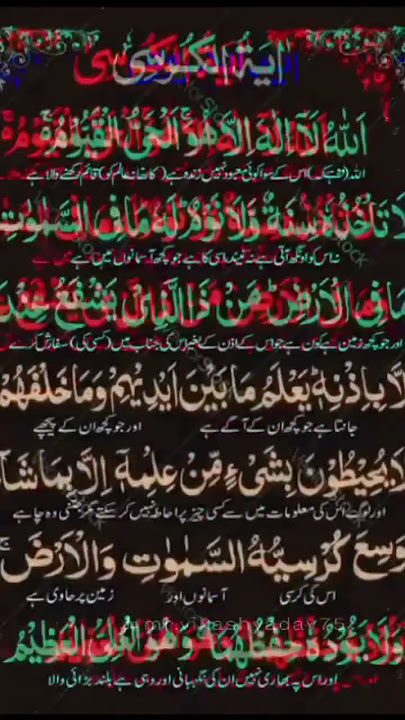 اٰیَۃُ الْکُرْسِی
اَللّٰهُ لَاۤ اِلٰهَ اِلَّا هُوَ ۚ اَلْحَیُّ الْقَیُّوْمُ
اللہ اس کے سوا کوئی معبود نہیں زندہ ہے (کارخانہ عالم کو) قائم رکھنے والا ہے
لَا تَاْخُذُهٗ سِنَةٌ وَّلَا نَوْمٌ ؕ لَهٗ مَا فِی السَّمٰوٰتِ
نہ اس کو اونگھ آتی ہے نہ نیند اسی کا ہے جو کچھ آسمانوں میں ہے
مَا فِی الْاَرْضِ ؕ مَنْ ذَا الَّذِیْ یَشْفَعُ عِنْدَ
اور جو کچھ زمین ہے کون ہے جو اس کے اذن کے بغیر اس کی جناب میں (کسی کی) سفارش کرے
لَّا بِاِذْنِهٖ ؕ یَعْلَمُ مَا بَیْنَ اَیْدِیْهِمْ وَمَا خَلْفَهُمْ
جانتا ہے جو کچھ ان کے آگے ہے اور جو کچھ ان کے پیچھے
لَا یُحِیْطُوْنَ بِشَیْءٍ مِّنْ عِلْمِهٖۤ اِلَّا بِمَا شَآ
اور لوگ اس کی معلومات میں سے کسی چیز پر احاطہ نہیں کر سکتے مگر جتنی وہ چاہے
وَسِعَ كُرْسِیُّهُ السَّمٰوٰتِ وَالْاَرْضَ ۚ
اس کی کرسی آسمانوں اور زمین پر حاوی ہے
وَلَا یَـُٔوْدُهٗ حِفْظُهُمَا ۚ وَهُوَ الْعَلِیُّ الْعَظِیْمُ
اور اس پر بھاری نہیں ان کی نگہبانی اور وہی ہے بلند بڑائی والا